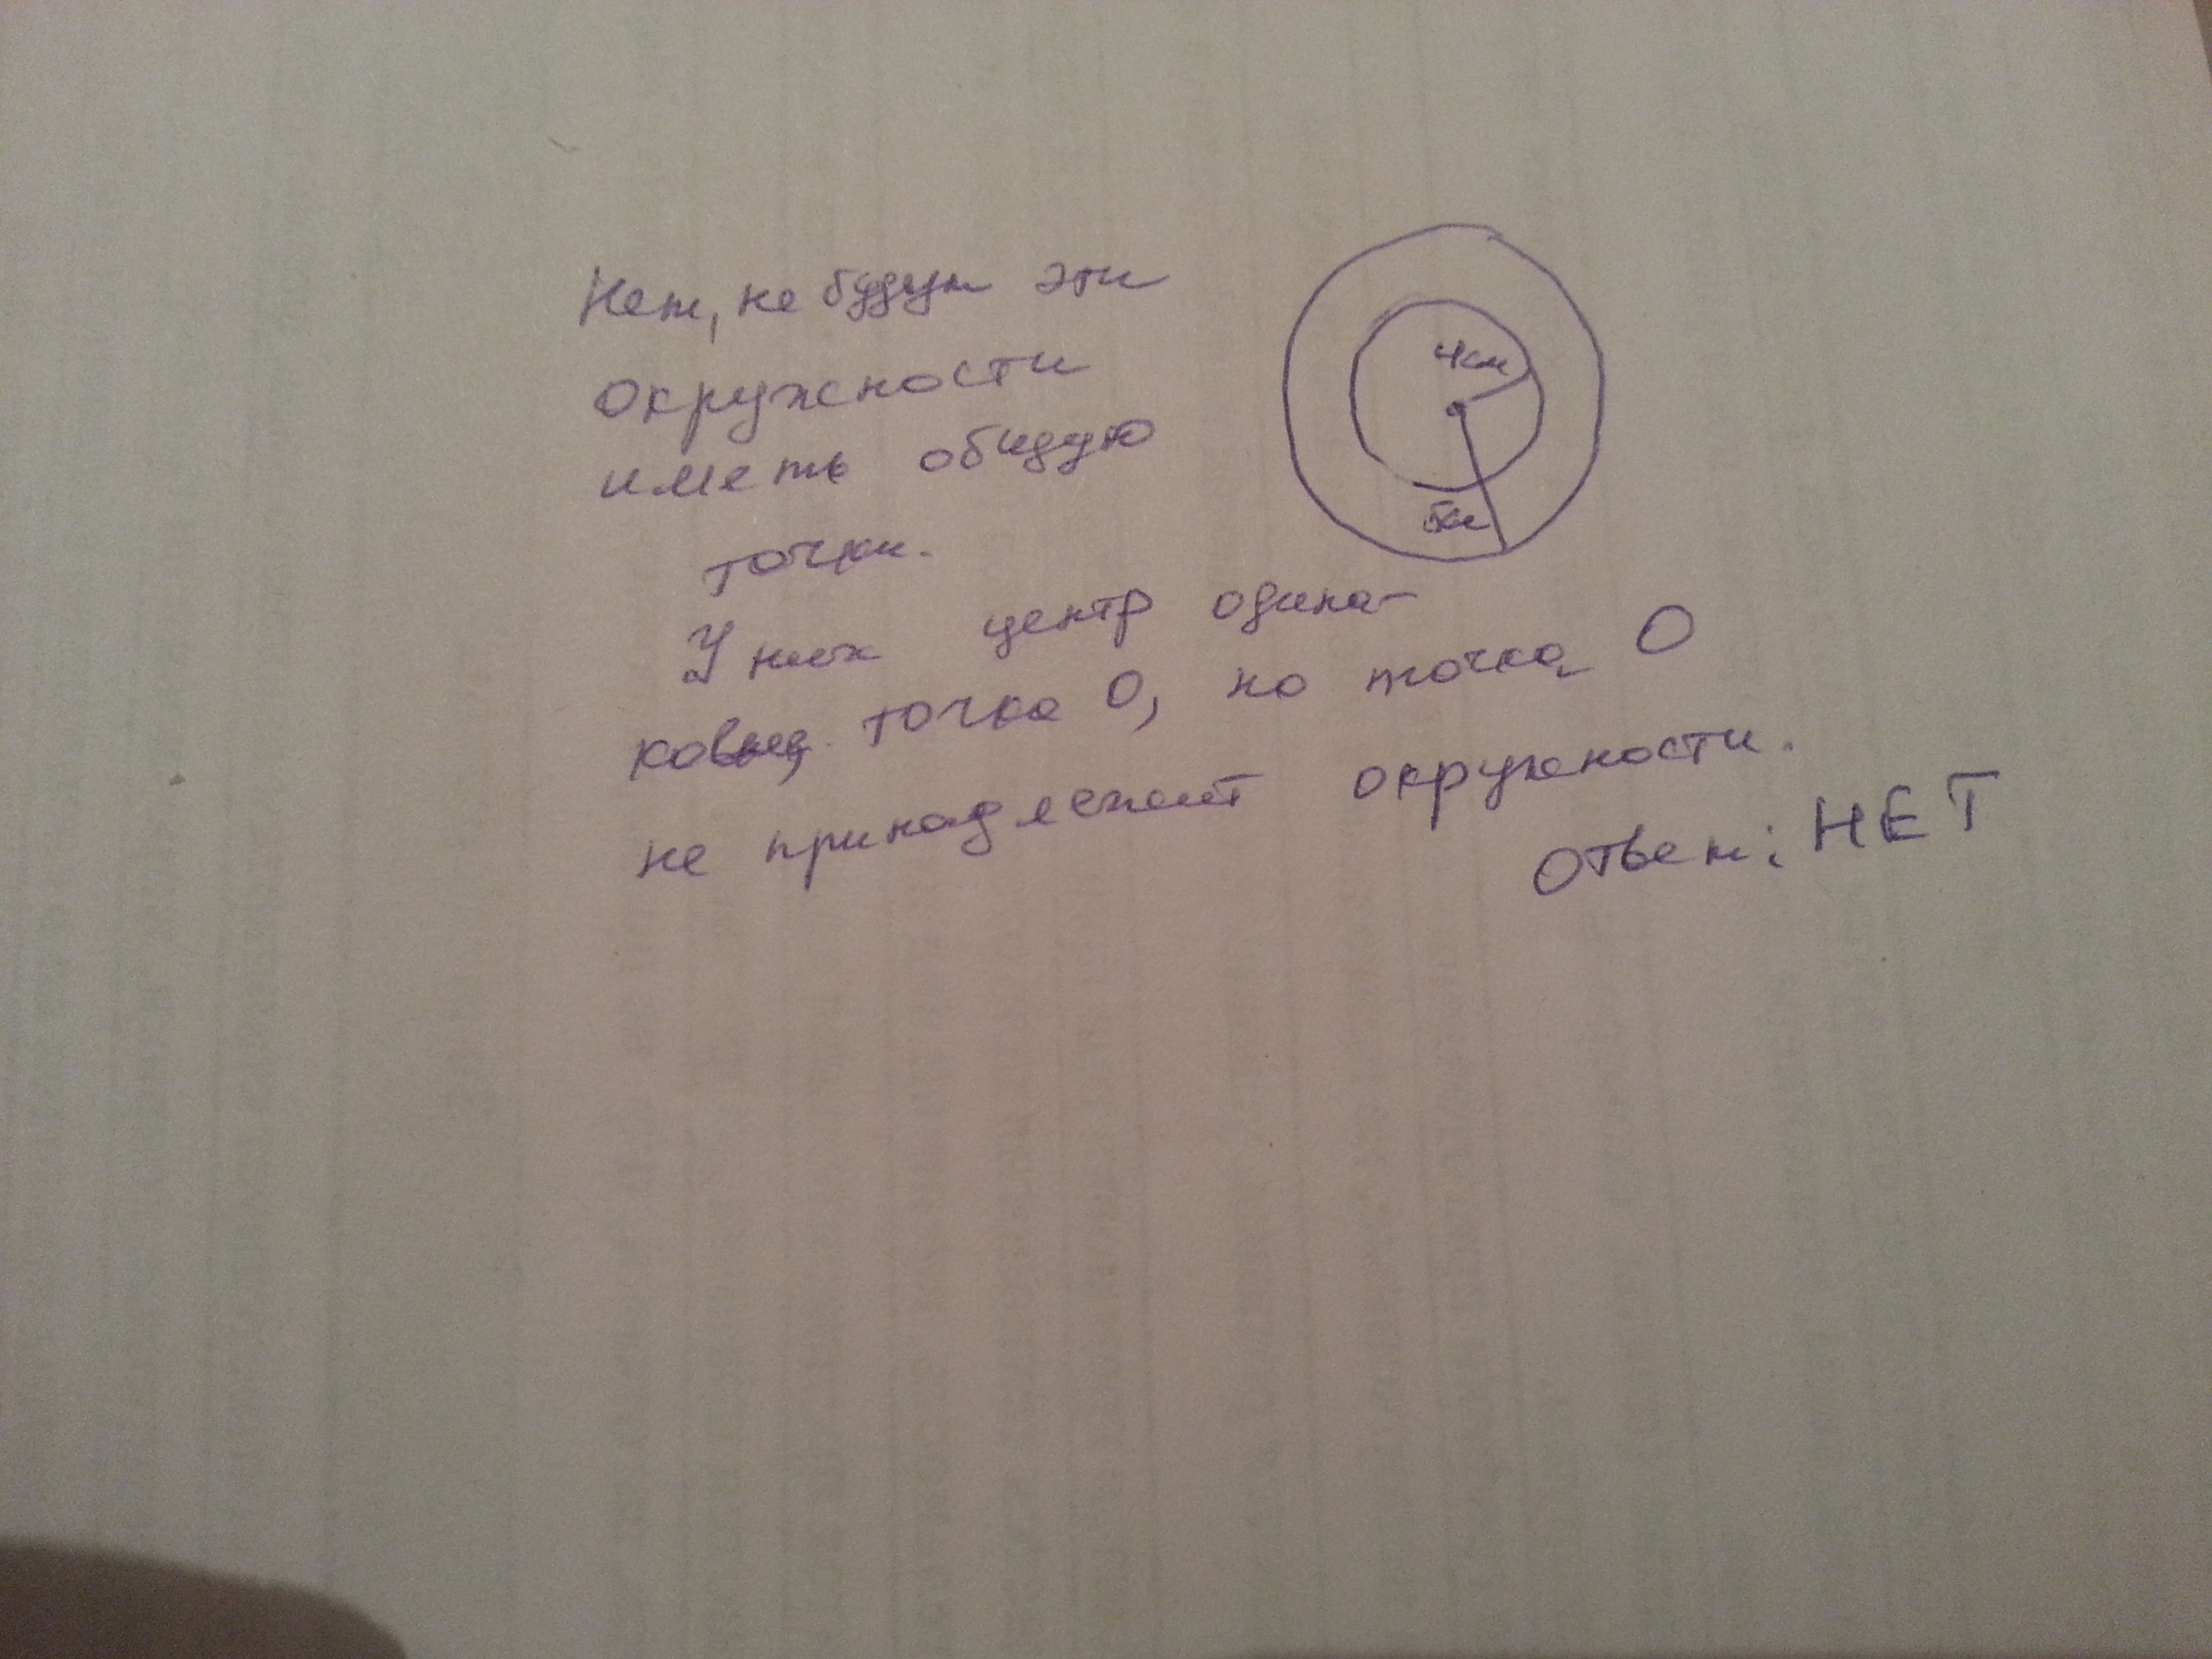 Нет, не будут эти
окружности
иметь общую
точки.
4см
5см
У них центр одина-
ковый, точка О, но точка О
не принадлежит окружности.
Ответ: НЕТ